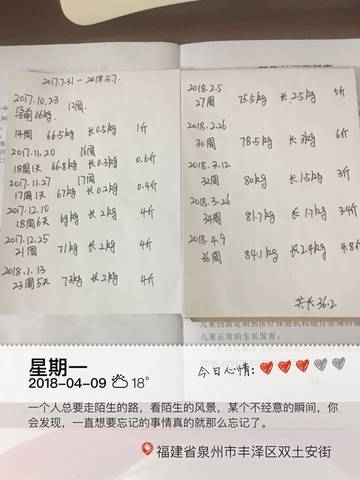 2017.7.31 — 2018.5.7.
2017.10.23 12周.
孕前66kg
14周 66.5kg 长0.5kg 1斤
2017.11.20 16周
18周1天 66.8kg 长0.3kg 0.6斤
2017.11.27 17周
17周1天 67kg 长0.2kg 0.4斤
2017.12.10
18周6天 69kg 长2kg 4斤
2017.12.25
21周 71kg 长2kg 4斤
2018.1.13
23周5天 73kg 长2kg 4斤
2018.2.5
27周 75.5kg 长2.5kg 5斤
2018.2.26
30周 78.5kg 长3kg 6斤
2018.3.12
32周 80kg 长1.5kg 3斤
2018.3.26
34周 81.7kg 长1.7kg 3.4斤
2018.4.9
36周 84.1kg 长2.4kg 4.8斤
共长36.2
儿童正常的生长发育。
星期一
2018-04-09 18°
今日心情:
一个人总要走陌生的路，看陌生的风景，某个不经意的瞬间，你
会发现，一直想要忘记的事情真的就那么忘记了。
福建省泉州市丰泽区双土安街